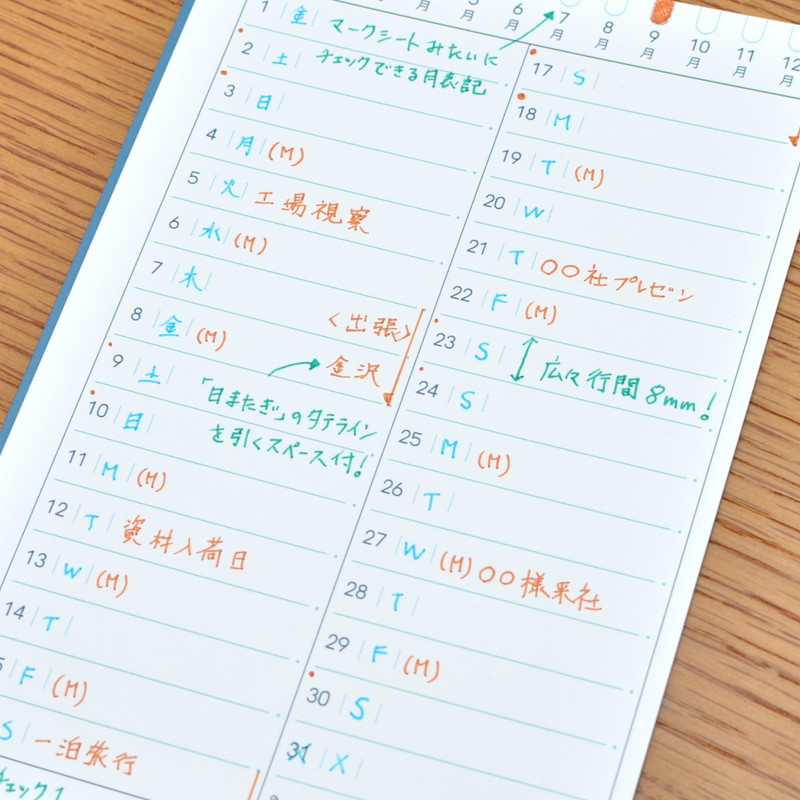 6月
7月
8月
9月
10月
11月
12月
1 金 マークシートみたいに
チェックできる月表記
2 土
3 日
4 月 (M)
5 火 工場視察
6 水 (M)
7 木
8 金 (M) <出張>
金沢
9 土
「日またぎ」のタテライン
を引くスペース付!
10 日
11 M (M)
12 T 資材入荷日
13 W (M)
14 T
5 F (M)
S 一泊旅行
チェック1
17 S
18 M
19 T (M)
20 W
21 T 〇〇社プレゼン
22 F (M)
23 S 広々行間8mm!
24 S
25 M (M)
26 T
27 W (M) 〇〇様来社
28 T
29 F (M)
30 S
31 X